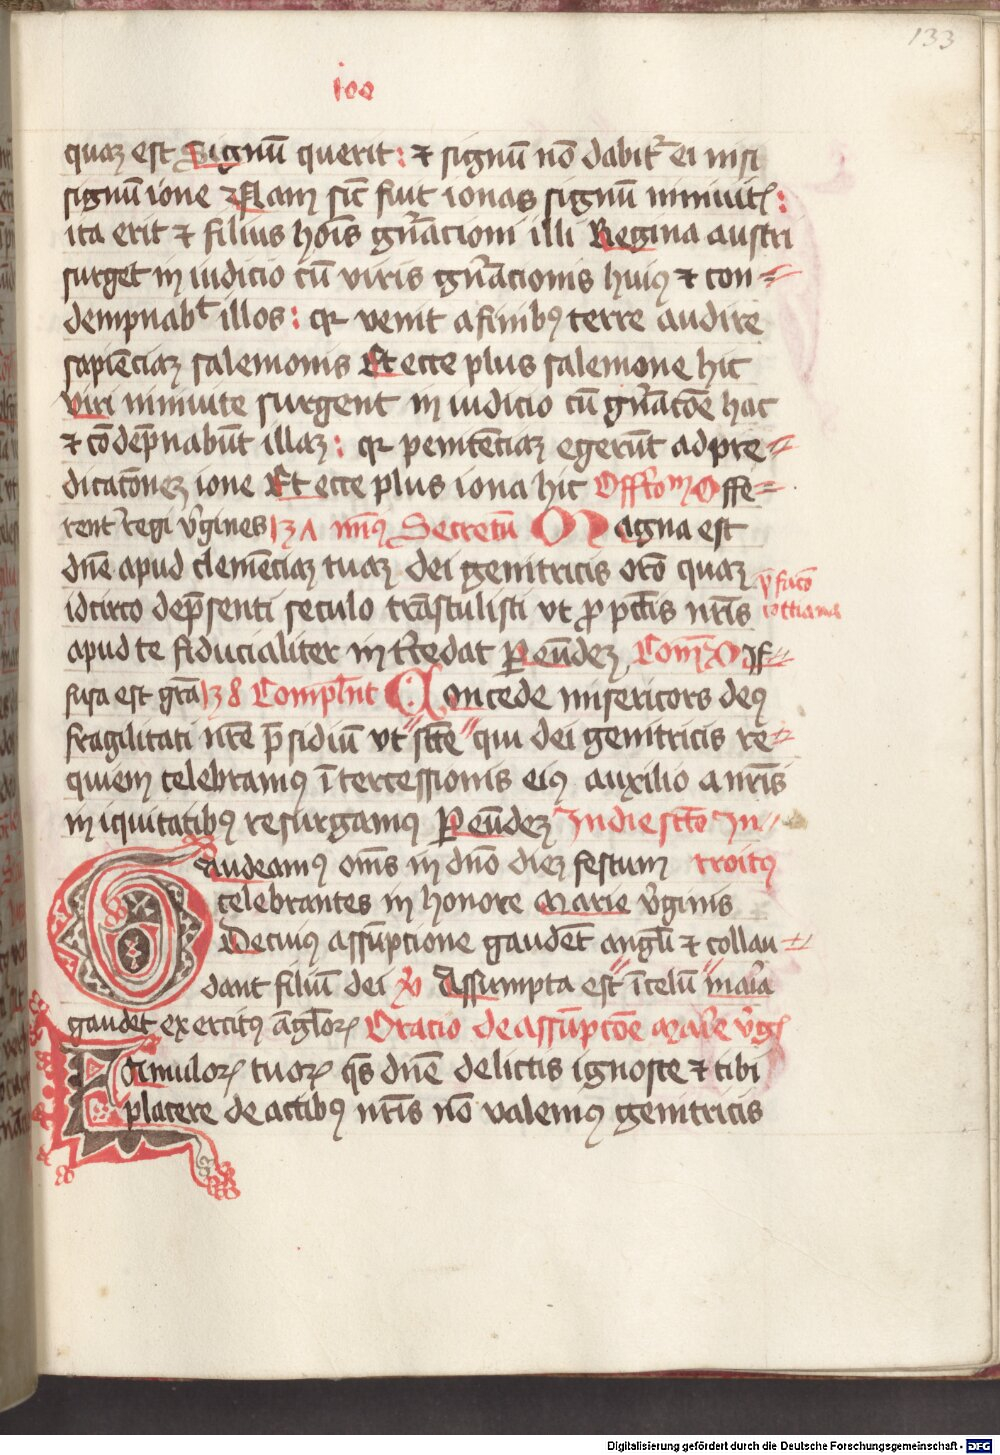 133
ioo
quaꝫ est Signū querit : ⁊ signū nō dabit᷑ ei nisi
signū ione ⁊ Nam sic̄ fuit ionas signū niniuit :
ita erit ⁊ filius hoīs gn̄acioni illi Regina austri
surget in iudicio cū viris gn̄acionis huiꝰ ⁊ con=
dempnabt illos : qꝛ venit a finibꝰ terre audire
sapiēciaꝫ salemonis Et ecce plus salemone hic
viri niniuite surgent in iudicio cū gn̄acōe hac
⁊ cōdēpnabūt illaꝫ : qꝛ penitēciaꝫ egerūt ad pre=
dicacōneꝫ ione Et ecce plus iona hic Offtoꝝ Offe=
rent᷑ regi v̄gines 131 Secretū Magna est
dn̄e apud clemēciaꝫ tuaꝫ dei genitricis orō quaꝫ
idcirco de p̄senti seculo trāstulisti vt ꝓ pctīs nr̄is
apud te fiducialiter int᷑cedat Per eūdeꝫ Com̄ Dif=
fusa est gr̄a 138 Compleñt Concede misericors deꝰ
fragilitati nr̄e p̄sidiū vt sc̄te qui dei genitricis re=
quiem celebramꝰ ītercessionis eiꝰ auxilio a nr̄is
iniquitatibꝰ resurgamꝰ Per eūdeꝫ In die sctō In=
Gaudeamꝰ om̄s in dn̄o dieꝫ festum troitꝰ
celebrantes in honore Marie v̄ginis
De cuiꝰ assūptione gaudēt angl̄i ⁊ collau=
dant filiū dei Assumpta est ī celū maria
gaudet exercitꝰ āglorꝝ Oracio de assūpcōe marie v̄gīs
Famulorꝝ tuorꝝ qs̄ dn̄e delictis ignosce ⁊ tibi
placere de actibꝰ nr̄is nō valemꝰ genitricis
Digitalisierung gefördert durch die Deutsche Forschungsgemeinschaft - DFG